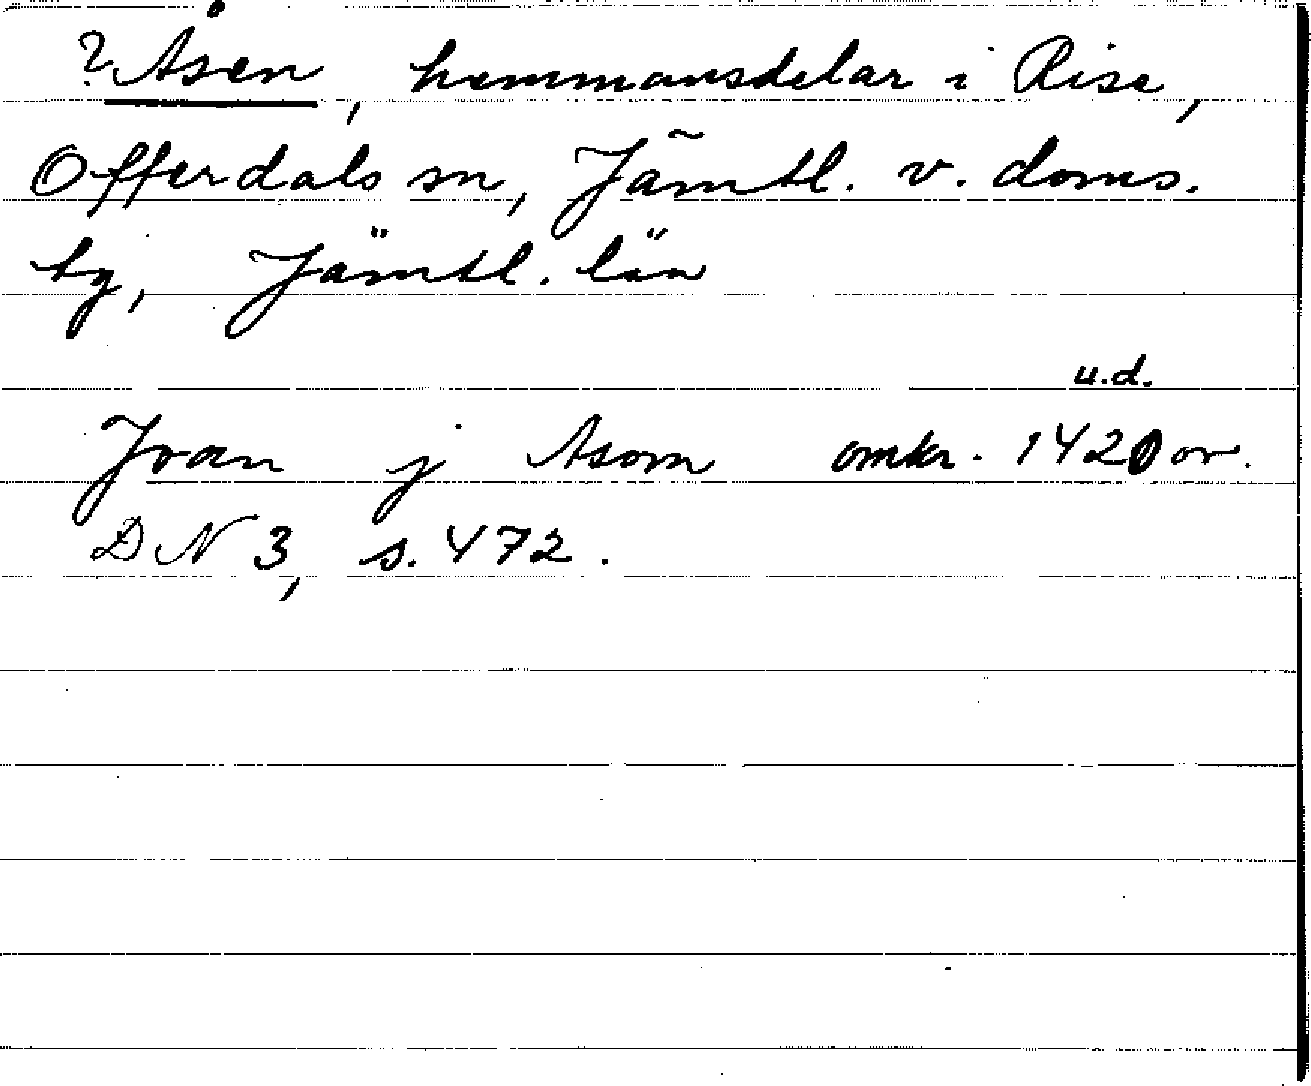 ? Åsen, hemmansdelar i Rise,
Offerdals sn, Jämtl. v. doms.
hg, Jämtl. län
u.d.
Jvan j Asom omkr. 1420 or.
DN 3, s. 472.